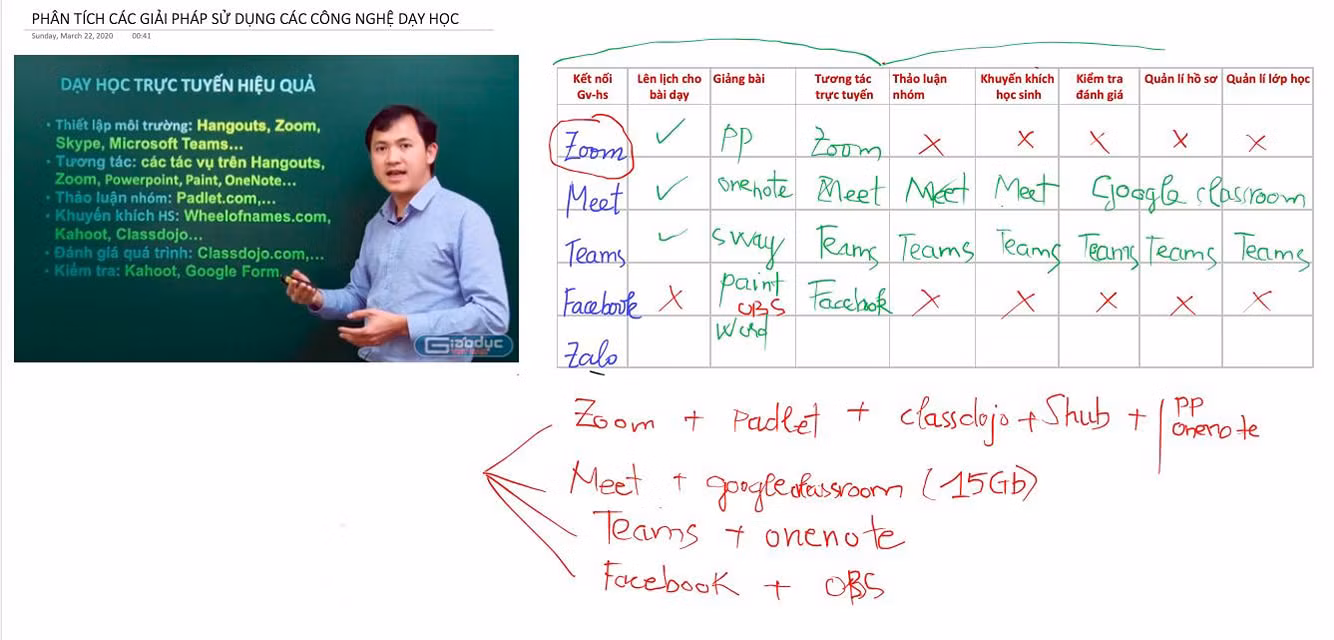 PHÂN TÍCH CÁC GIẢI PHÁP SỬ DỤNG CÁC CÔNG NGHỆ DẠY HỌC
Sunday, March 22, 2020 00:41
DẠY HỌC TRỰC TUYẾN HIỆU QUẢ
• Thiết lập môi trường: Hangouts, Zoom,
Skype, Microsoft Teams...
• Tương tác: các tác vụ trên Hangouts,
Zoom, Powerpoint, Paint, OneNote...
• Thảo luận nhóm: Padlet.com,...
• Khuyến khích HS: Wheelofnames.com,
Kahoot, Classdojo...
• Đánh giá quá trình: Classdojo.com,...
• Kiểm tra: Kahoot, Google Form.
Giáodục
Kết nối Gv-hs Lên lịch cho bài dạy Giảng bài Tương tác trực tuyến Thảo luận nhóm Khuyến khích học sinh Kiểm tra đánh giá Quản lí hồ sơ Quản lí lớp học
Zoom ✓ PP Zoom X X X X X
Meet ✓ onenote Meet Meet Meet Google classroom
Teams ✓ Sway Teams Teams Teams Teams Teams Teams
Facebook X paint OBS Word Facebook X X X X X
Zalo
Zoom + Padlet + classdojo + Shub + PP onenote
Meet + googleclassroom (15Gb)
Teams + onenote
Facebook + OBS